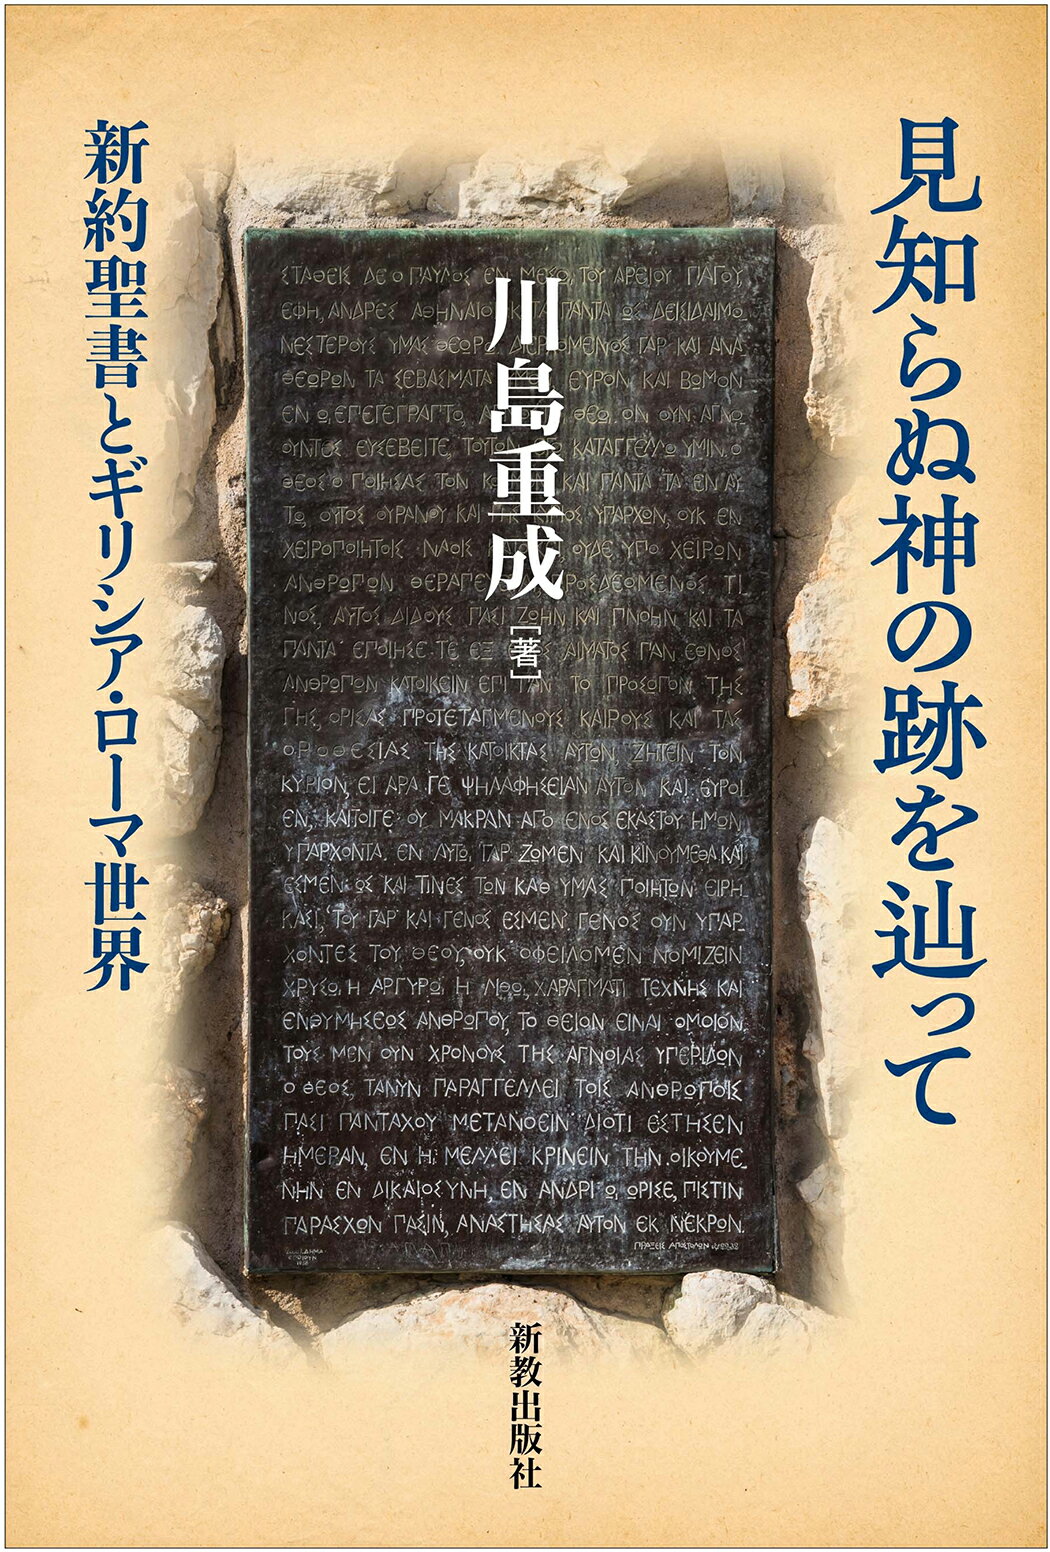 見知らぬ神の跡を辿って
新約聖書とギリシア・ローマ世界
川島重成
[著]
ΣΤΑΘΕΙΣ ΔΕ Ο ΠΑΥΛΟΣ ΕΝ ΜΕΣΩ, ΤΟΥ ΑΡΕΙΟΥ ΠΑΓΟΥ,
ΕΦΗ, ΑΝΔΡΕΣ ΑΘΗΝΑΙΟΙ ΚΑΤΑ ΠΑΝΤΑ ΩΣ ΔΕΙΣΙΔΑΙΜΟ
ΝΕΣΤΕΡΟΥΣ ΥΜΑΣ ΘΕΩΡΩ ΔΙΕΡΧΟΜΕΝΟΣ ΓΑΡ ΚΑΙ ΑΝΑ
ΘΕΩΡΩΝ ΤΑ ΣΕΒΑΣΜΑΤΑ ΕΥΡΟΝ ΚΑΙ ΒΩΜΟΝ
ΕΝ Ω ΕΠΕΓΕΓΡΑΠΤΟ, ΘΕΩ. ΟΝ ΟΥΝ ΑΓΝΟ
ΟΥΝΤΕΣ ΕΥΣΕΒΕΙΤΕ, ΤΟΥΤΟΝ ΚΑΤΑΓΓΕΛΛΩ ΥΜΙΝ. Ο
ΘΕΟΣ Ο ΠΟΙΗΣΑΣ ΤΟΝ ΚΑΙ ΠΑΝΤΑ ΤΑ ΕΝ ΑΥ
ΤΩ, ΟΥΤΟΣ ΟΥΡΑΝΟΥ ΚΑΙ ΥΠΑΡΧΩΝ, ΟΥΚ ΕΝ
ΧΕΙΡΟΠΟΙΗΤΟΙΣ ΝΑΟΙΣ ΟΥΔΕ ΥΠΟ ΧΕΙΡΩΝ
ΑΝΘΡΩΠΩΝ ΘΕΡΑΠΕΥ ΠΡΟΣΔΕΟΜΕΝΟΣ ΤΙ
ΝΟΣ, ΑΥΤΟΣ ΔΙΔΟΥΣ ΠΑΣΙ ΖΩΗΝ ΚΑΙ ΠΝΟΗΝ ΚΑΙ ΤΑ
ΠΑΝΤΑ ΕΠΟΙΗΣΕ ΤΕ ΕΞ ΑΙΜΑΤΟΣ ΠΑΝ ΕΘΝΟΣ
ΑΝΘΡΩΠΩΝ ΚΑΤΟΙΚΕΙΝ ΕΠΙ ΠΑΝ ΤΟ ΠΡΟΣΩΠΟΝ ΤΗΣ
ΓΗΣ, ΟΡΙΣΑΣ ΠΡΟΤΕΤΑΓΜΕΝΟΥΣ ΚΑΙΡΟΥΣ ΚΑΙ ΤΑΣ
ΟΡΟΘΕΣΙΑΣ ΤΗΣ ΚΑΤΟΙΚΙΑΣ ΑΥΤΩΝ ΖΗΤΕΙΝ ΤΟΝ
ΚΥΡΙΟΝ, ΕΙ ΑΡΑ ΓΕ ΨΗΛΑΦΗΣΕΙΑΝ ΑΥΤΟΝ ΚΑΙ ΕΥΡΟΙ
ΕΝ, ΚΑΙΤΟΙΓΕ ΟΥ ΜΑΚΡΑΝ ΑΠΟ ΕΝΟΣ ΕΚΑΣΤΟΥ ΗΜΩΝ
ΥΠΑΡΧΟΝΤΑ. ΕΝ ΑΥΤΩ ΓΑΡ ΖΩΜΕΝ ΚΑΙ ΚΙΝΟΥΜΕΘΑ ΚΑΙ
ΕΣΜΕΝ ΩΣ ΚΑΙ ΤΙΝΕΣ ΤΩΝ ΚΑΘ ΥΜΑΣ ΠΟΙΗΤΩΝ ΕΙΡΗ
ΚΑΣΙ, ΤΟΥ ΓΑΡ ΚΑΙ ΓΕΝΟΣ ΕΣΜΕΝ. ΓΕΝΟΣ ΟΥΝ ΥΠΑΡ
ΧΟΝΤΕΣ ΤΟΥ ΘΕΟΥ, ΟΥΚ ΟΦΕΙΛΟΜΕΝ ΝΟΜΙΖΕΙΝ
ΧΡΥΣΩ, Η ΑΡΓΥΡΩ Η ΛΙΘΩ, ΧΑΡΑΓΜΑΤΙ ΤΕΧΝΗΣ ΚΑΙ
ΕΝΘΥΜΗΣΕΩΣ ΑΝΘΡΩΠΟΥ, ΤΟ ΘΕΙΟΝ ΕΙΝΑΙ ΟΜΟΙΟΝ.
ΤΟΥΣ ΜΕΝ ΟΥΝ ΧΡΟΝΟΥΣ ΤΗΣ ΑΓΝΟΙΑΣ ΥΠΕΡΙΔΩΝ
Ο ΘΕΟΣ, ΤΑΝΥΝ ΠΑΡΑΓΓΕΛΛΕΙ ΤΟΙΣ ΑΝΘΡΩΠΟΙΣ
ΠΑΣΙ ΠΑΝΤΑΧΟΥ ΜΕΤΑΝΟΕΙΝ ΔΙΟΤΙ ΕΣΤΗΣΕΝ
ΗΜΕΡΑΝ, ΕΝ Η ΜΕΛΛΕΙ ΚΡΙΝΕΙΝ ΤΗΝ ΟΙΚΟΥΜΕ
ΝΗΝ ΕΝ ΔΙΚΑΙΟΣΥΝΗ, ΕΝ ΑΝΔΡΙ Ω ΩΡΙΣΕ, ΠΙΣΤΙΝ
ΠΑΡΑΣΧΩΝ ΠΑΣΙΝ, ΑΝΑΣΤΗΣΑΣ ΑΥΤΟΝ ΕΚ ΝΕΚΡΩΝ.
ΠΡΑΞΕΙΣ ΑΠΟΣΤΟΛΩΝ
新教出版社